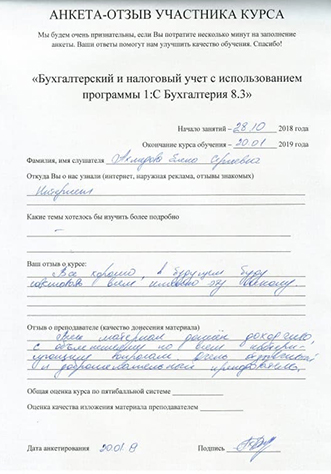 АНКЕТА-ОТЗЫВ УЧАСТНИКА КУРСА
Мы будем очень признательны, если Вы потратите несколько минут на заполнение
анкеты. Ваши ответы помогут нам улучшить качество обучения. Спасибо!
«Бухгалтерский и налоговый учет с использованием
программы 1:С Бухгалтерия 8.3»
Начало занятий – 28.10 2018 года
Окончание курса обучения – 20.01 2019 года
Фамилия, имя слушателя Елена Сергеевна
Откуда Вы о нас узнали (интернет, наружная реклама, отзывы знакомых)
Интернет
Какие темы хотелось бы изучить более подробно
–
Ваш отзыв о курсе:
Все хорошо, в будущем буду
всем именно эту
Отзыв о преподавателе (качество донесения материала)
материал доходчиво,
с по всем
вопросам очень
и доброжелательный
Общая оценка курса по пятибалльной системе
Оценка качества изложения материала преподавателем
Дата анкетирования 20.01.19
Подпись